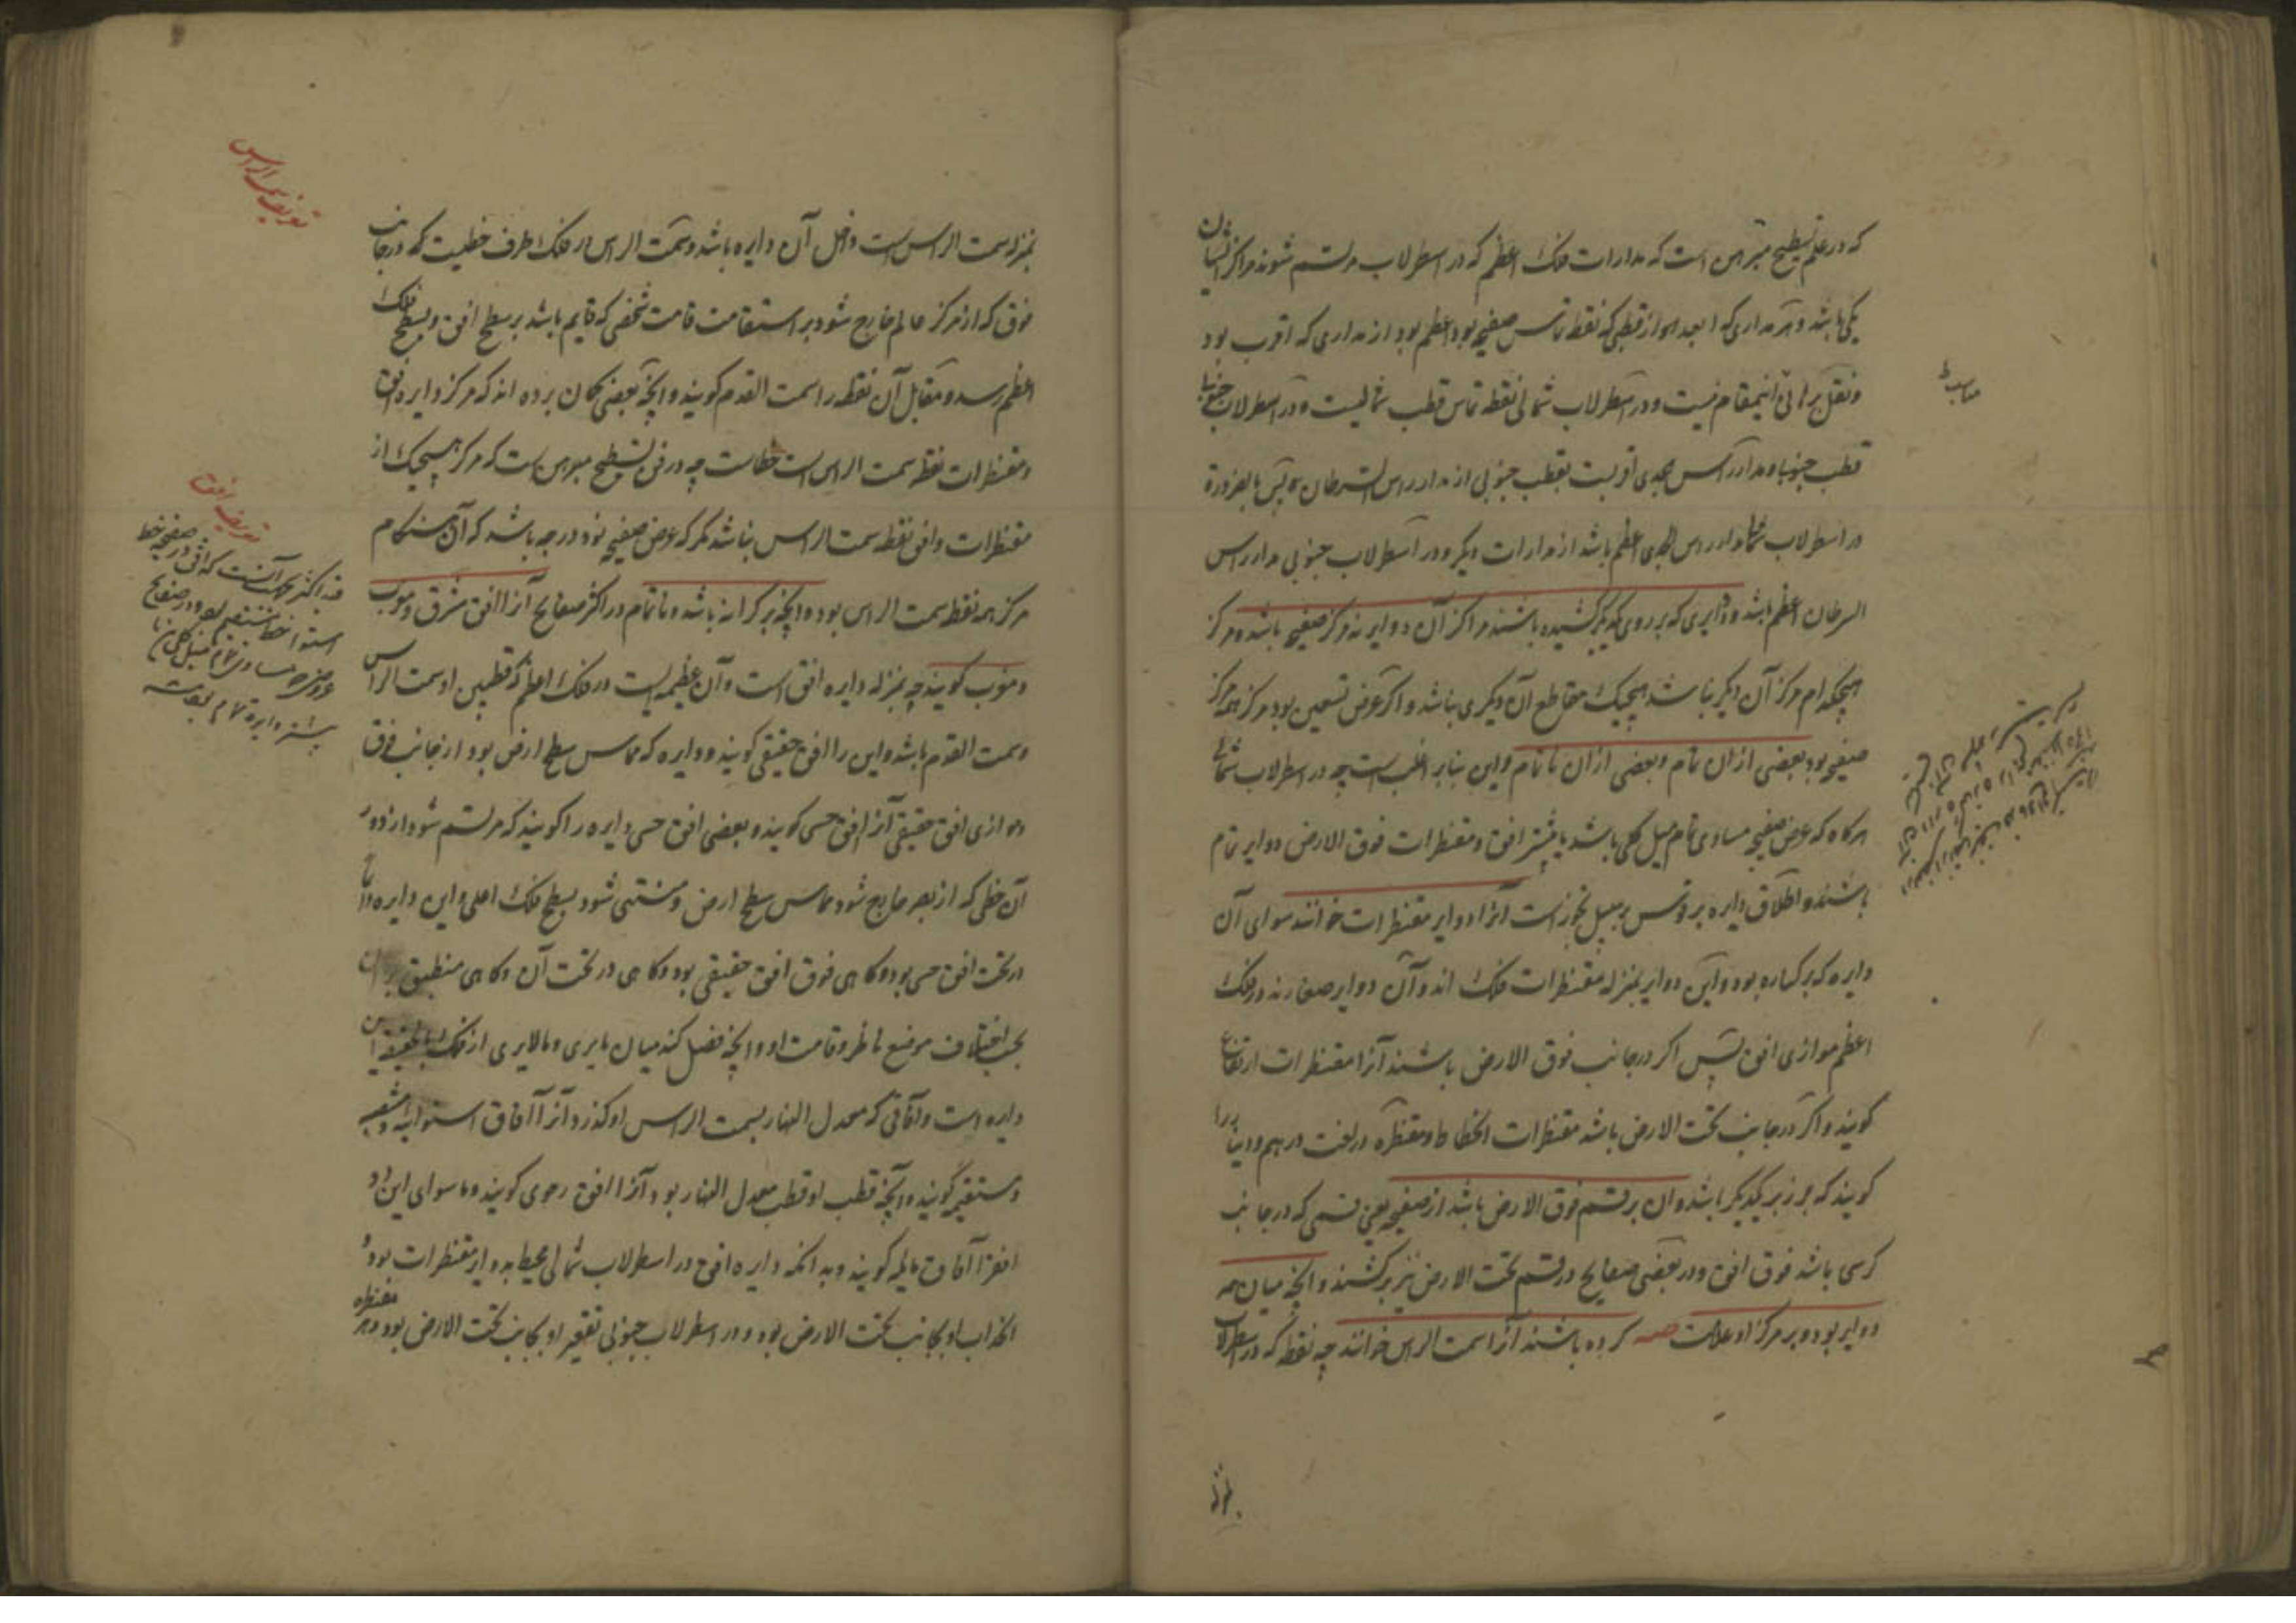 که در علم تسطیح مبرهن است که مدارات فلک اعظم که در اسطرلاب مرتسم شوند مراکز ایشان
یکی باشد و هر مداری که ابعد بود از قطبی که نقطه تماس صفیحه بود اعظم بود از مداری که اقرب بود
و نقل براهین اینمقام نیست و در اسطرلاب شمالی نقطه تماس قطب شمالیست و در اسطرلاب جنوبی
قطب جنوب و مدار راس جدی اقربست بقطب جنوبی از مدار راس السرطان پس بالضروره
در اسطرلاب شمالی مدار راس الجدی اعظم باشد از مدارات دیگر و در اسطرلاب جنوبی مدار راس
السرطان اعظم باشد و دوایری که بر روی یکدیگر کشیده باشند مراکز آن دوایر نه مرکز صفیحه باشد و مرکز
هیچکدام مرکز آن دیگر نباشد هیچیک مقاطع آن دیگری نباشد و اگر عرض تسعین بود مرکز همه مرکز
صفیحه بود بعضی ازان تمام و بعضی ازان ناتمام و این بنابر اغلب است چه در اسطرلاب شمالی
هرگاه که عرض صفیحه مساوی تمام میل کلی باشد یا بیشتر افق و مقنطرات فوق الارض دوایر تمام
باشند و اطلاق دایره بر قوس بر سبیل تجوز است آنرا دوایر مقنطرات خوانند سوای آن
دایره که بر کناره بود و این دوایر بمنزله مقنطرات فلک اند و آن دوایر صغارند در فلک
اعظم موازی افق پس اگر در جانب فوق الارض باشند آنرا مقنطرات ارتفاع
کویند و اگر در جانب تحت الارض باشد مقنطرات انحطاط و مقنطره در لغت درهم و دینار را
کویند که بر زبر یکدیگر باشد و ان بر قسم فوق الارض باشد از صفیحه یعنی قسمی که در جانب
کرسی باشد فوق افق و در بعضی صفایح در قسم تحت الارض نیز برکشند و آنچه میان همه
دوایر بود و بر مرکز او علامت صه کرده باشند آنرا سمت الراس خوانند چه نقطه که در اسطرلاب
بمنزله سمت الراس است داخل آن دایره باشد و سمت الراس در فلک طرف خطیست که در جانب
فوق که از مرکز عالم خارج شود بر استقامت قامت شخصی که قایم باشد بر سطح افق و بسطح فلک
اعظم رسد و مقابل آن نقطه را سمت القدم کویند و آنچه بعضی کمان برده اند که مرکز دایره افق
و مقنطرات نقطه سمت الراس است خطاست چه در فن تسطیح مبرهن است که مرکز هیچیک از
مقنطرات و افق نقطه سمت الراس نباشد مگر که عرض صفیحه نود درجه باشد که آن هنگام
مرکز همه نقطه سمت الراس بود و آنچه بر کرانه باشد و ناتمام در اکثر صفایح آنرا افق مشرق و مغرب
و مغرب کویند چه بمنزله دایره افق است و آن عظیمه ایست در فلک اعظم که قطبین او سمت الراس
و سمت القدم باشد و این را افق حقیقی کویند و دایره که مماس سطح ارض بود از جانب فوق
و موازی افق حقیقی آنرا افق حسی کویند و بعضی افق حسی دایره را کویند که مرتسم شود از دور
آن خطی که از بصر خارج شود مماس سطح ارض و منتهی شود بسطح فلک اعلی و این دایره
در تحت افق حسی بود و کاهی فوق افق حقیقی بود و کاهی در تحت آن و کاهی منطبق بر آن
بحسب اختلاف موضع ناظر و قامت او و آنچه فصل کند میان مایری و مالایری از فلک این
دایره است و آفاقی که معدل النهار بسمت الراس او کذرد آنرا آفاق استوائیه
و مستقیمه کویند و آنچه قطب او قطب معدل النهار بود آنرا افق رحوی کویند و ماسوای این دو
افق را آفاق مایله کویند و بدانکه دایره افق در اسطرلاب شمالی محیط بدوایر مقنطرات بود و
انحداب او بجانب تحت الارض بود و در اسطرلاب جنوبی تقعیر او بجانب تحت الارض بود و هر مقنطره
تعریف سمت الراس
تعریف افق